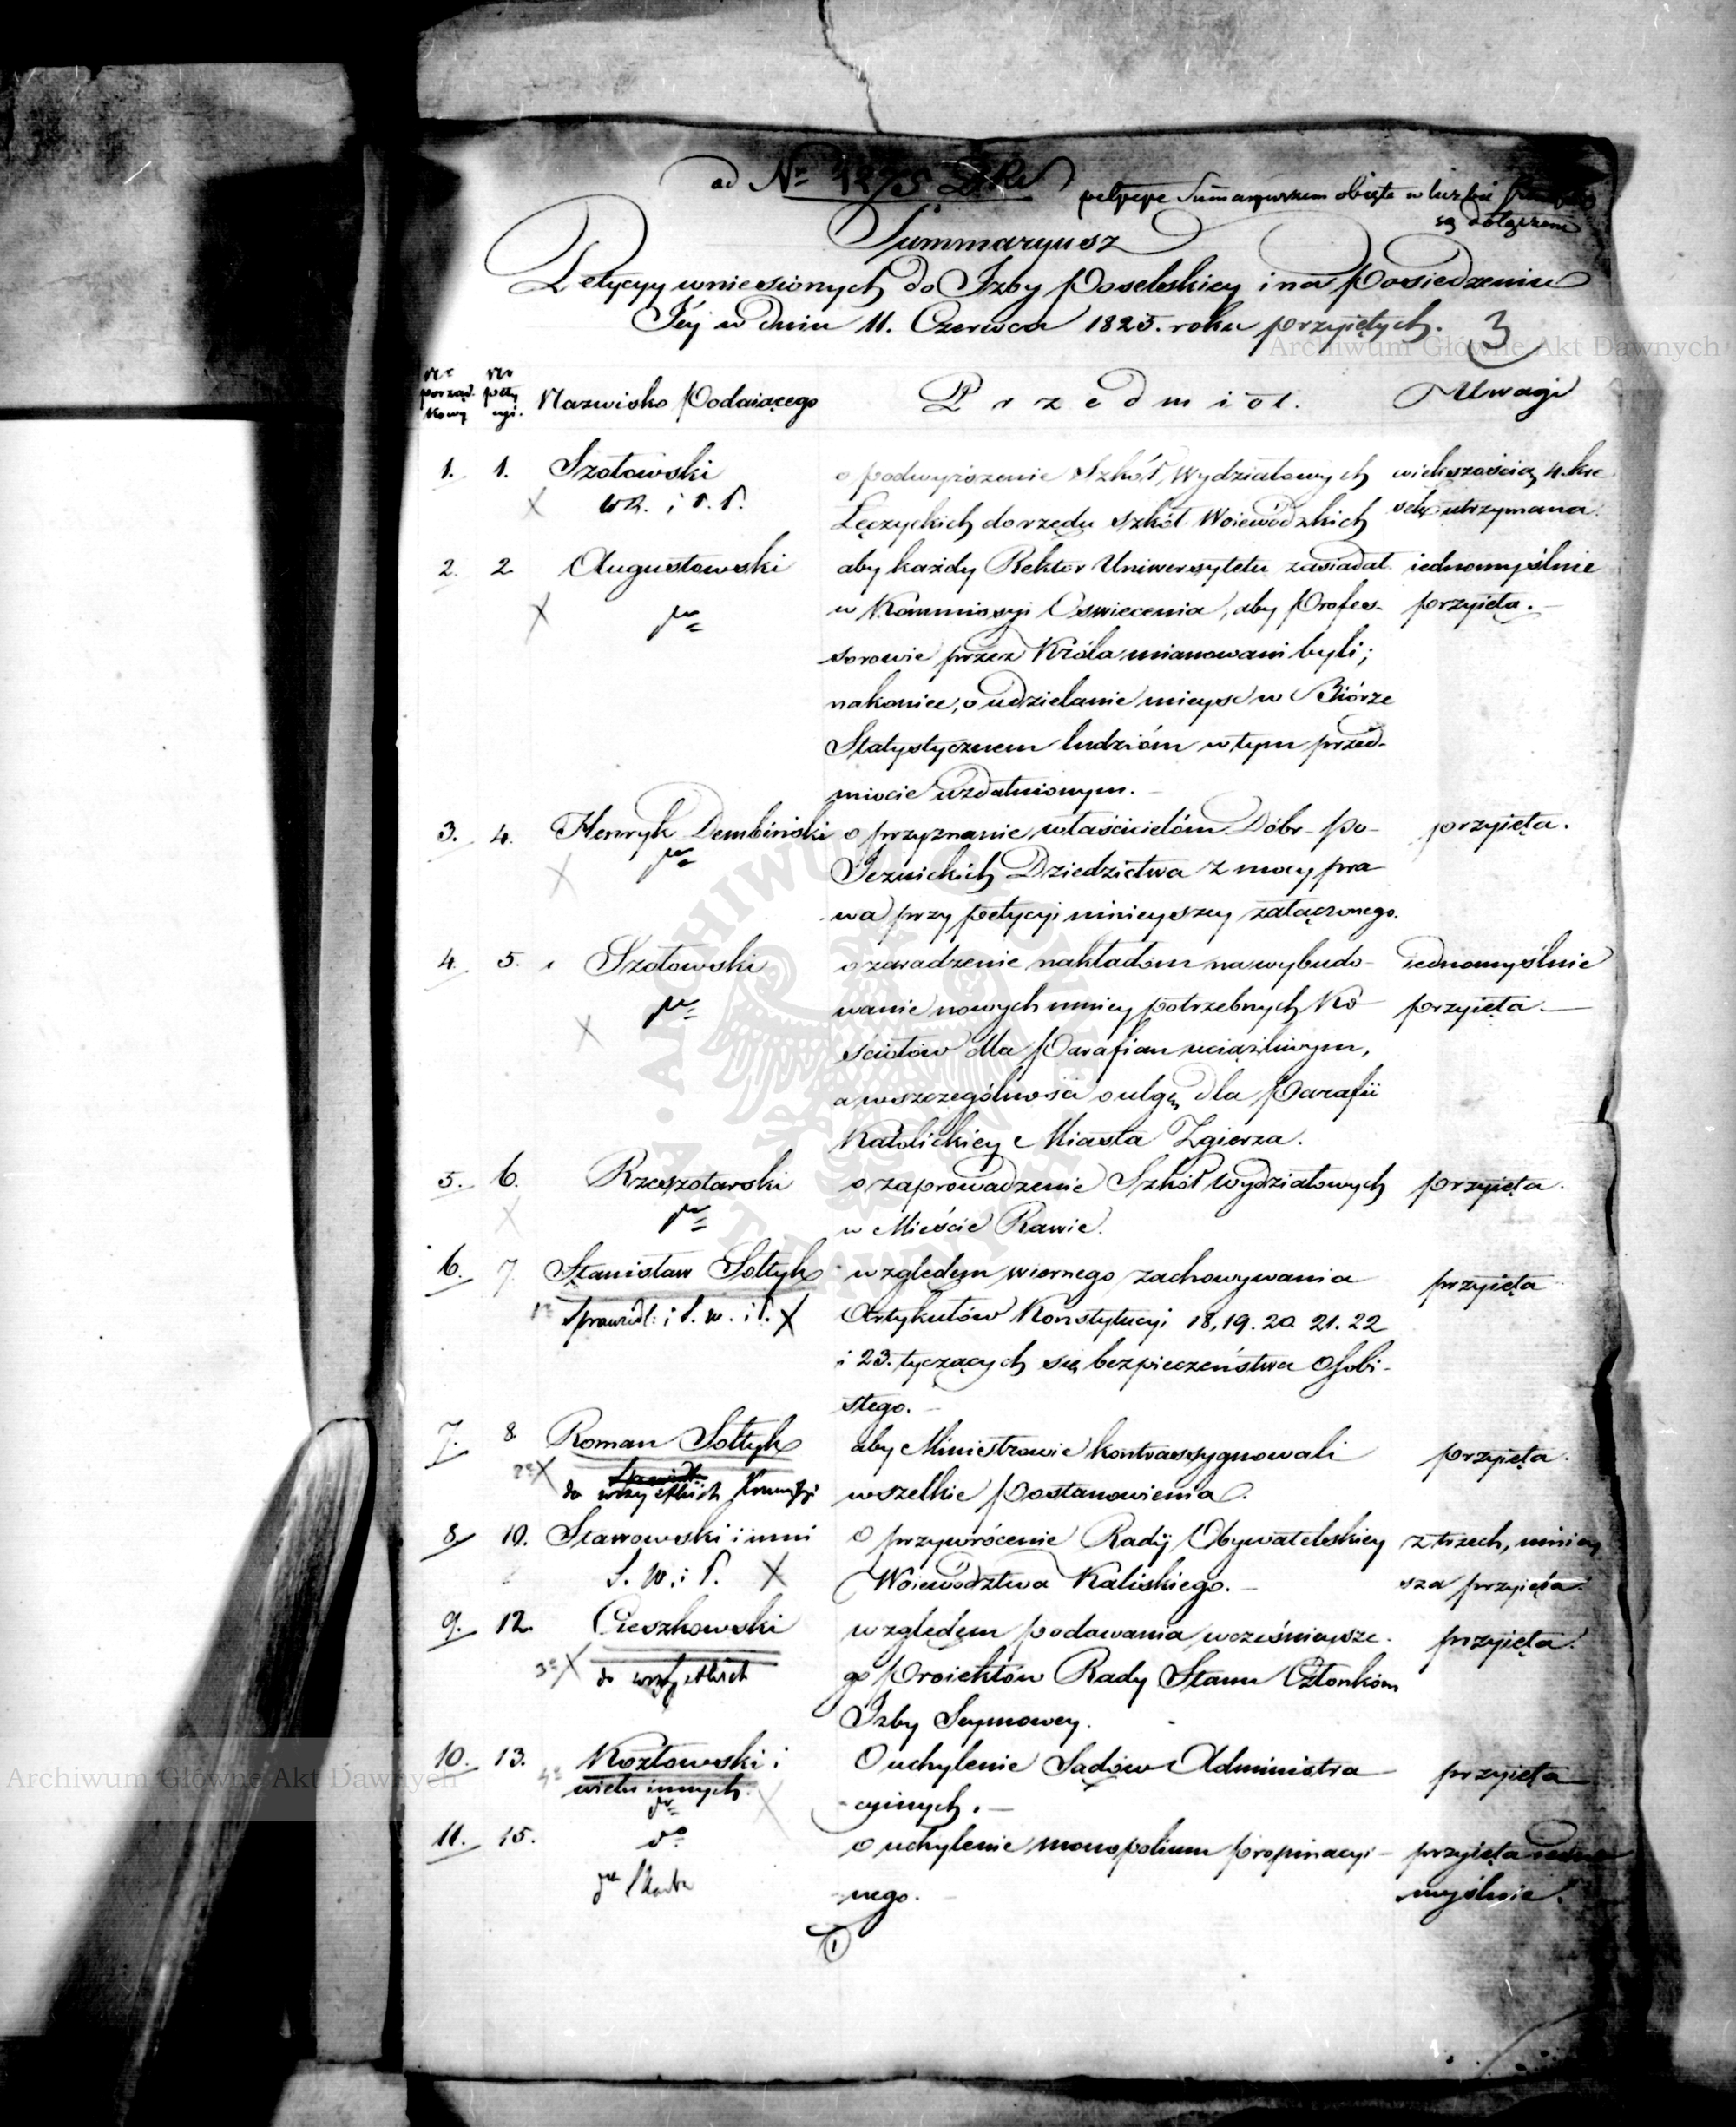 ad Nr 1275
petycye Summaryuszem objęte w liczbie
są dołączone
Summaryusz
Petycyy wniesionych do Izby Poselskiey i na Posiedzeniu
Jéy w dniu 11. Czerwca 1825. roku przyiętych. 3
Nr porząd- kowy Nr pety cyi. Nazwisko Podaiącego Przedmiot. Uwagi
1. 1. Szołowski o podwyższenie Szkół Wydziałowych większością 4. kre
WR. i O. P. Łęczyckich do rzędu szkół Woiewódzkich sek utrzymana.
2. 2 Augustowski aby każdy Rektor Uniwersytetu zasiadał iednomyślnie
w Kommissyi Oswiecenia, aby Profes- przyięta.
sorowie przez Króla mianowani byli;
nakoniec, o udzielanie mieysc w Biórze
Statystycznem ludzióm w tym przed-
miocie uzdatnionym.
3. 4. Henryk Dembiński o przyznanie właścicielóm Dóbr Po- przyięta.
Jezuickich Dziedzictwa z mocy pra
wa przy petycyi ninieyszey załączonego.
4. 5. Szołowski o zaradzenie nakładom na wybudo- iednomyślnie
wanie nowych mniey potrzebnych Ko przyięta.
ściołów dla Parafian uciążliwym,
a w szczególności o ulgę dla Parafii
Katolickiey Miasta Zgierza.
5. 6. Rzeszotarski o zaprowadzenie Szkół Wydziałowych przyięta.
w Mieście Rawie.
6. 7. Stanisław Sołtyk względem wiernego zachowywania przyięta
1o Sprawiedl: i S. W. i P. X Artykułów Konstytucyi 18, 19. 20. 21. 22
i 23. tyczących się bezpieczeństwa Osobi-
stego.
7. 8. Roman Sołtyk aby Ministrowie kontrassygnowali przyięta.
2o X do wszystkich Kommissyi wszelkie Postanowienia.
8. 10. Starowski i inni o przywrócenie Rady Obywatelskiey z trzech, mniey
S. W. i P. X Woiewództwa Kaliskiego. sza przyięta.
9. 12. Cieszkowski względem podawania wcześnieysze- przyięta.
3o X do wszystkich go Proiektów Rady Stanu Członkóm
Izby Seymowey.
10. 13. Kozłowski i O uchylenie Sądów Administra przyięta
4o wielu innych. cyinych.
11. 15. do o uchylenie monopolium propinacyi- przyięta iedno
Skarbu nego. myślnie.
1
Archiwum Główne Akt Dawnych
Archiwum Główne Akt Dawnych